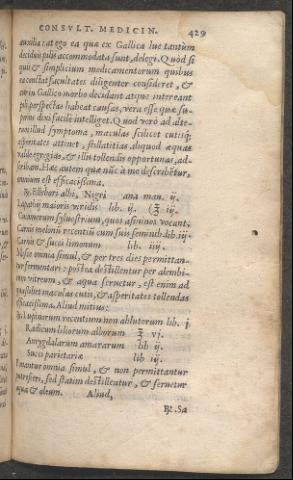 CONSVLT. MEDICIN. 429
auxilia: at ego ea qua ex Gallica lue tantùm
deciduis pilis accommodata sunt, delegi. Quod si
quis & simplicium medicamentorum quibus
ea constat facultates diligenter consideret, &
cur in Gallico morbo decidant atque intereant
pili perspectas habeat causas, vera esse quæ su-
perius dixi facilè intelliget. Quod verò ad alte-
rum illud symptoma, maculas scilicet cutisq́;
asperitates attinet, stillatitias aliquod aquas
valde egregias, & illis tollendis opportunas, ad-
scribam. Hæc autem quæ nũc à me describẽtur,
omnium est efficacissima.
℞. Ellebori albi, Nigri ana man. ij.
Lapathij maioris viridis lib. ij. (℥ ij.
Cucumerum syluestrium, quos asininos vocant,
Carnis melonũ recentiũ cum suis seminib. lib. iij.
Carnis & succi limonum lib. iij.
Misce omnia simul, & per tres dies permittan-
tur fermentari: postea destillentur per alembi-
um vitreum, & aqua seruetur, est enim ad
quaslibet maculas cutis, & asperitates tollendas
efficacissima. Aliud mitius:
℞. Lupinorum recentium non ablutorum lib. j.
Radicum liliorum alborum ℥ vj.
Amygdalarum amararum lib ij.
Succi parietariæ lib ij.
omnia simul, & non permittantur
putresieri, sed statim destillentur, & seruetur
aqua & oleum. Aliud,
℞. Sa